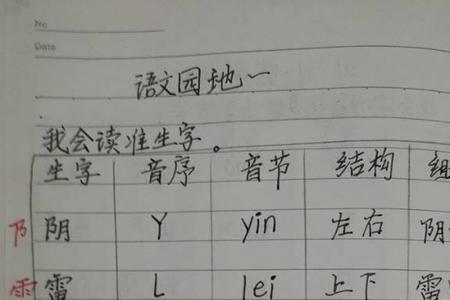 No
Date
语文园地一
我会读准生字。
生字 音序 音节 结构 组
阝 阴 Y yin 左右 阴
雨 雷 L lei 上下 雷